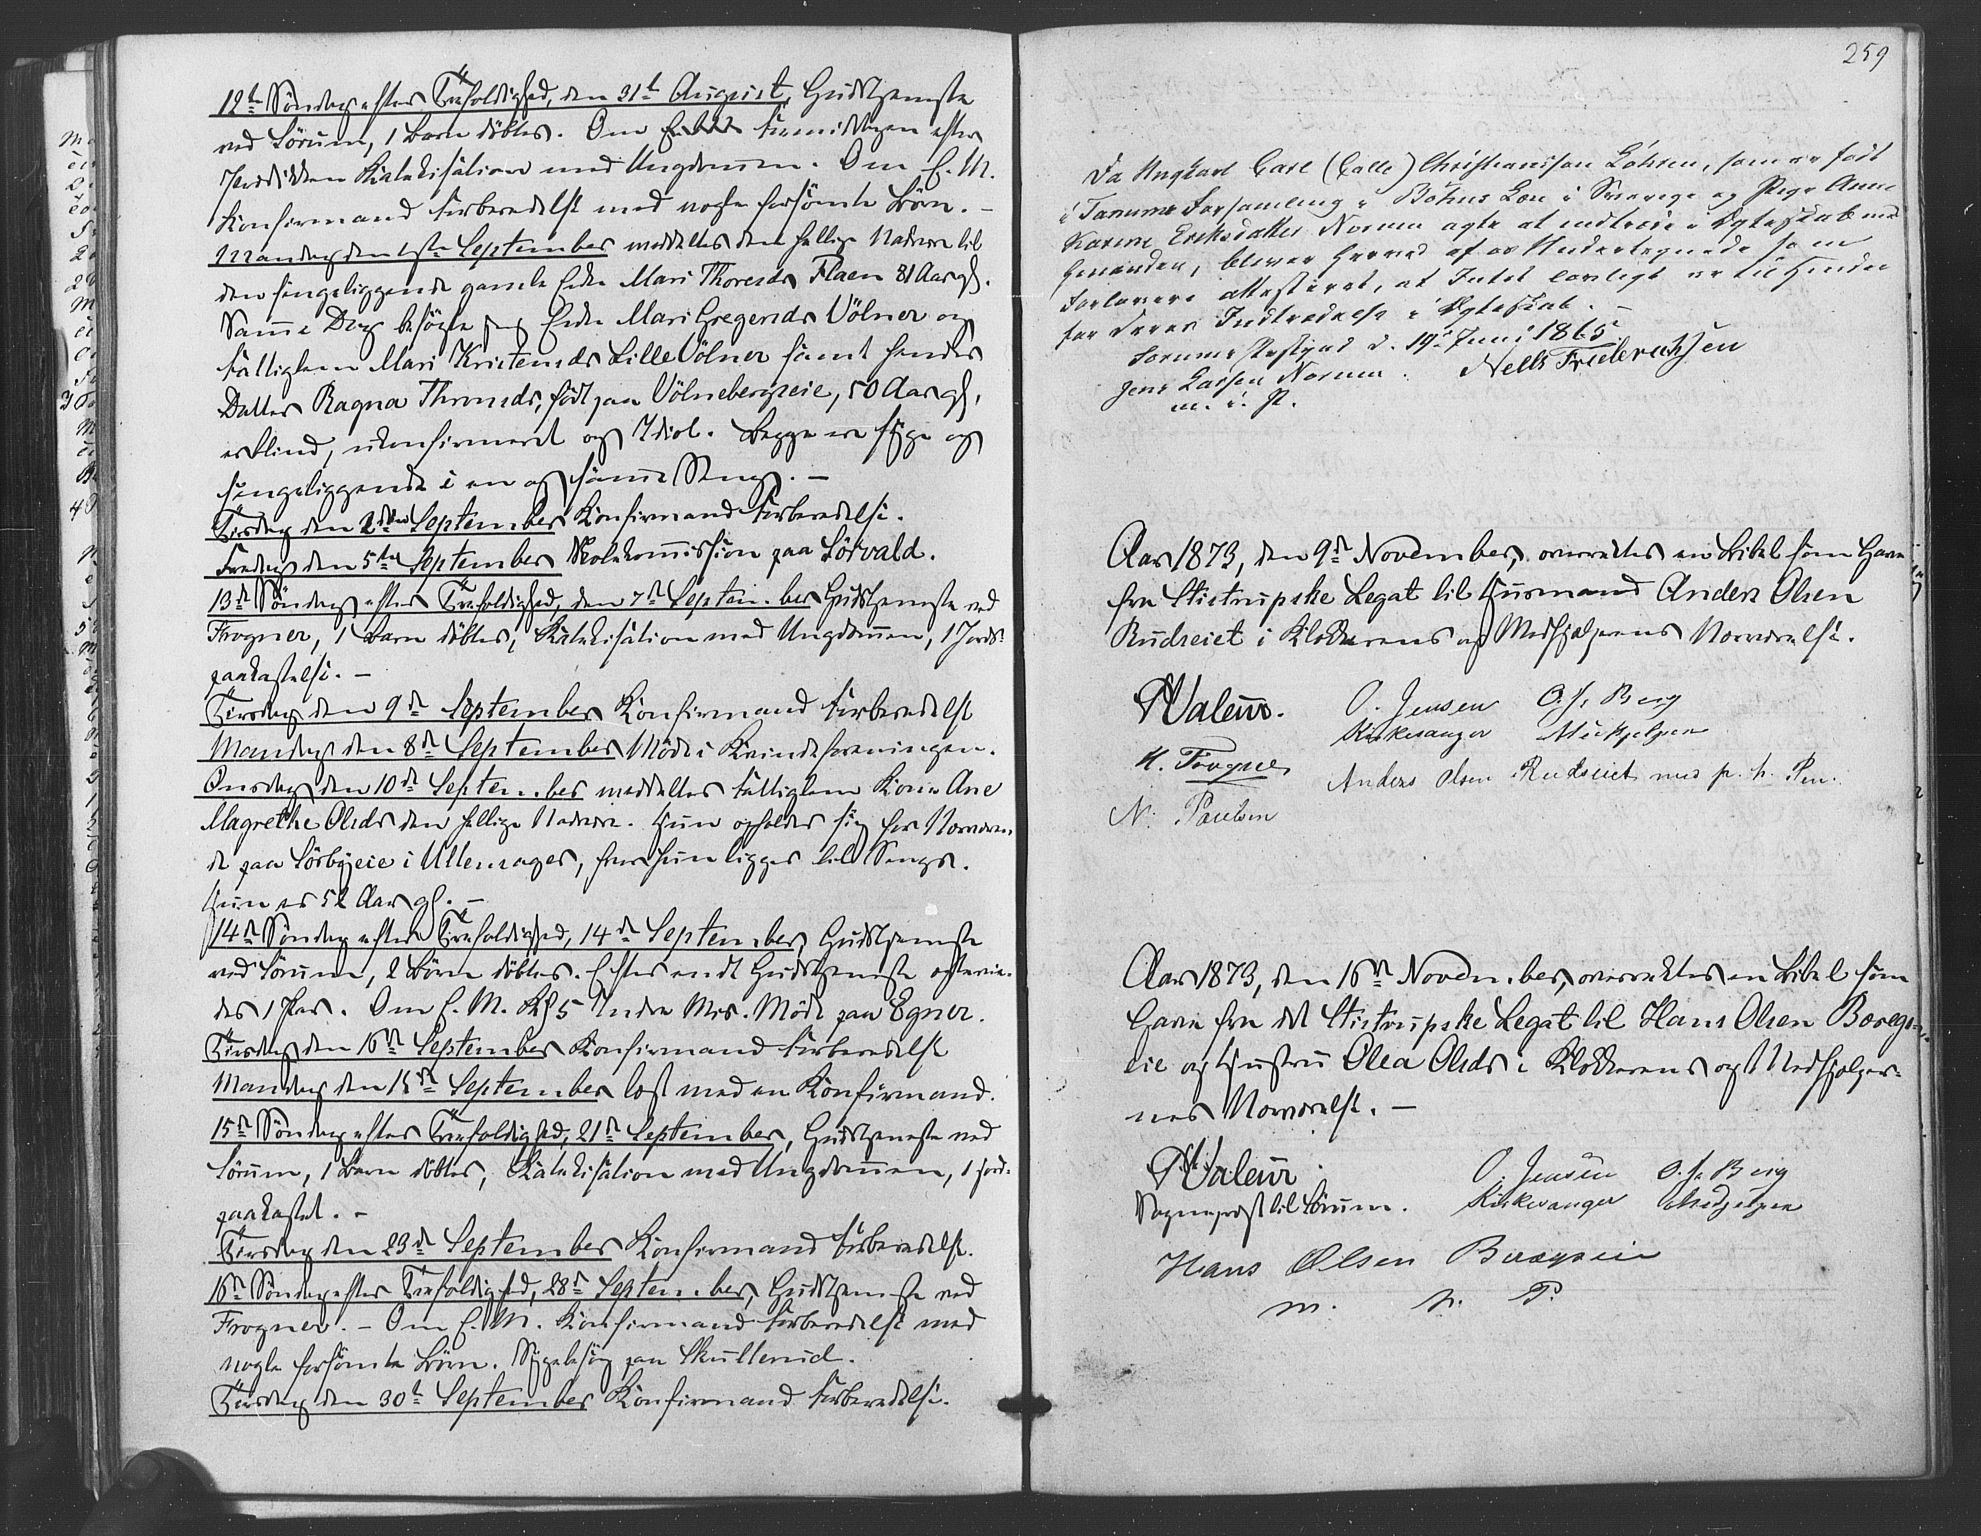 12te Søndag efter Trefoldighed, den 31te August, Gudstjeneste
ved Sørum, 1 Barn døbtes. Om Formiddagen efter
Prædiken Katekisation med Ungdommen. Om E. M.
Konfirmand Forberedelse med nogle forsømte Børn. –
Mandag den 1ste September meddeltes den hellige Nadvere til
den sengeliggende gamle Enke Mari Thoresds Flaen 81 Aar gl.
Samme Dag besøgte jeg Enke Mari Gregersds Vølner og
Fattiglem Mari Kristensds Lille Vølner samt hendes
Datter Ragna Thronsds, født paa Vølnebergeie, 50 Aar gl.,
er blind, ukonfirmeret og Idiot. Begge ere syge og
sengeliggende i en og samme Seng. –
Tirsdag den 2den September Konfirmand Forberedelse.
Fredag den 5te September Skolekommission paa Sørvald.
13de Søndag efter Trefoldighed, den 7de September Gudstjeneste ved
Frogner, 1 Barn døbtes, Katekisation med Ungdommen, 1 Jords-
paakastelse. –
Tirsdag den 9de September Konfirmand Forberedelse
Mandag den 8de September Møde i Kvindeforeningen.
Onsdag den 10de September meddeltes Fattiglem Kone Ane
Magrethe Olsds den hellige Nadvere. Hun opholder sig for Nærværen-
de paa Sørbyeie i Ullensager, hvor hun ligger til Sengs.
Hun er 52 Aar gl. –
14de Søndag efter Trefoldighed, 14de September, Gudstjeneste
ved Sørum, 2 Børn døbtes. Efter endt Gudstjeneste vie-
des 1 Par. Om E. M. Kl 5 Indre Mis. Møde paa Egner.
Tirsdag den 16de September Konfirmand Forberedelse
Mandag den 15de September læst med en Konfirmand.
15de Søndag efter Trefoldighed, 21de September, Gudstjeneste ved
Sørum, 1 Barn døbtes, Katekisation med Ungdommen, 1 Jord-
paakastet. –
Tirsdag den 23de September Konfirmand Forberedelse.
16de Søndag efter Trefoldighed, 28de September, Gudstjeneste ved
Frogner. – Om E. M. Konfirmand Forberedelse med
nogle forsømte Børn. Sygebesøg paa Skullerud.
Tirsdag den 30te September Konfirmand Forberedelse.
259
Da Ungkarl Carl (Calle) Christiansson Løhren, som er født
i Tanums Forsamling i Bohus Len i Sverige og Pige Anne
Karine Eriksdatter Norum agte at indtræde i Ægteskab med
hinanden, bliver herved af os Undertegnede som
Forlovere attesteret, at Intet lovligt er til Hinder
for deres Indtrædelse i Ægteskab. –
Sorums Præstgaard d. 19de Juni 1865.
Jens Larsen Norum. Nells Friderichsen
m. i. P.
Aar 1873, den 9de November, overraktes en Bibel som Gave
fra Stistrupske Legat til Husmand Anders Olsen
Rudseiet i Klokkerens og Medhjælperens Nærværelse.
Valeur. O. Jensen O. J. Berg
Kirkesanger Medhjelper
K. Frogner Anders Olsen Rudseiet med p. h. Pen.
N. Paulsen
Aar 1873, den 16de November, overraktes en Bibel som
Gave fra det Stistrupske Legat til Hans Olsen Boregs-
eie og Hustru Olea Olsds i Klokkerens og Medhjælper-
nes Nærværelse. –
Valeur. O. Jensen O. J. Berg
Sogneprest til Sørum. Kirkesanger Medhjelper
Hans Olsen
m. h. P.